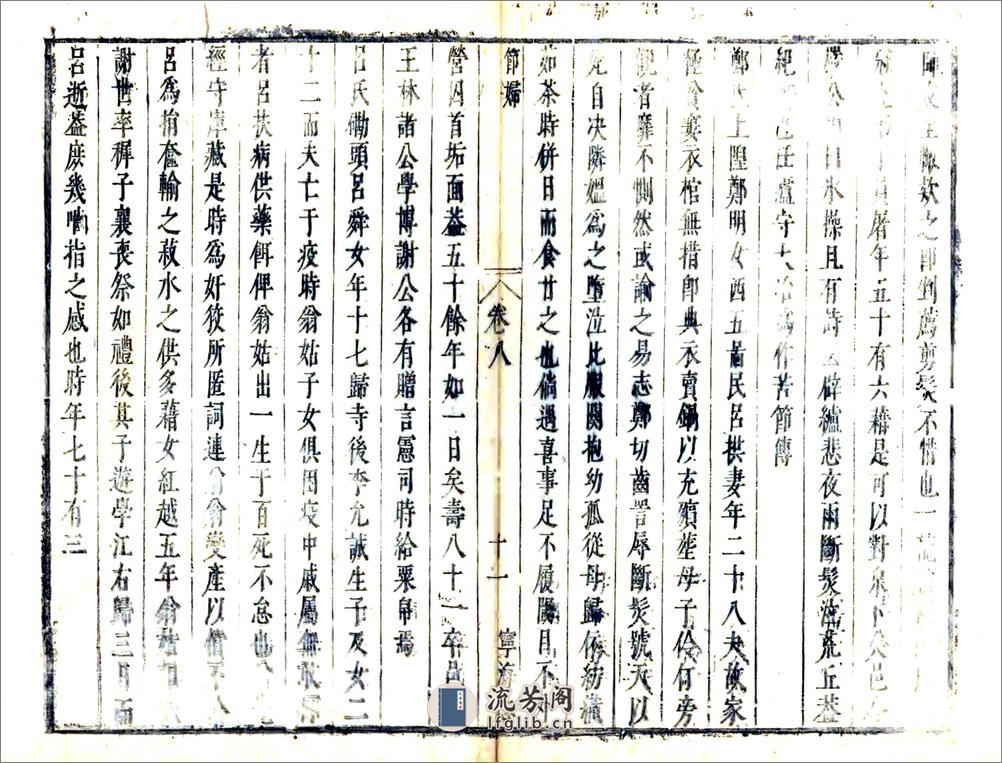 歟之即剉薦剪髮不惜也一
年五十有六藉是可以對泉下公邑
冰操且有詩云緯悲夜雨斷髮流荒丘蓋
廬守大為作苦節傳
鄭氏上隍鄭明女西五啚民呂拱妻年二十八夫故家
極貧窶衣棺無措即典衣賣鍋以充殯塟母子伶仃旁
觀者靡不惻然或諭之易志鄭切齒詈辱斷髮號天以
死自决隣媼爲之墮泣比服闋抱幼孤從母歸依紡織
茹荼時併日而食甘之也倘遇喜事足不履閾且不
節婦
卷八
十一
寧海
營因首垢面蓋五十餘年如一日矣壽八十一卒邑
王林諸公學博謝公各有贈言憲司時給粟帛焉
呂氏磡頭呂舜女年十七歸寺後李允誠生子及女二
十二而夫亡于疫時翁姑子女俱困疫中戚屬無敢
者呂扶病供藥餌俾翁姑出一生于百死不怠也
經守庫藏是時爲奸狡所匿詞連翁變產以償不
呂爲捐奩輸之菽水之供多藉女紅越五年翁姑相
謝世率穉子襄喪祭如禮後其子遊學江右歸三月而
呂逝葢庶幾嚙指之感也時年七十有三
流芳阁
lfglib.cn